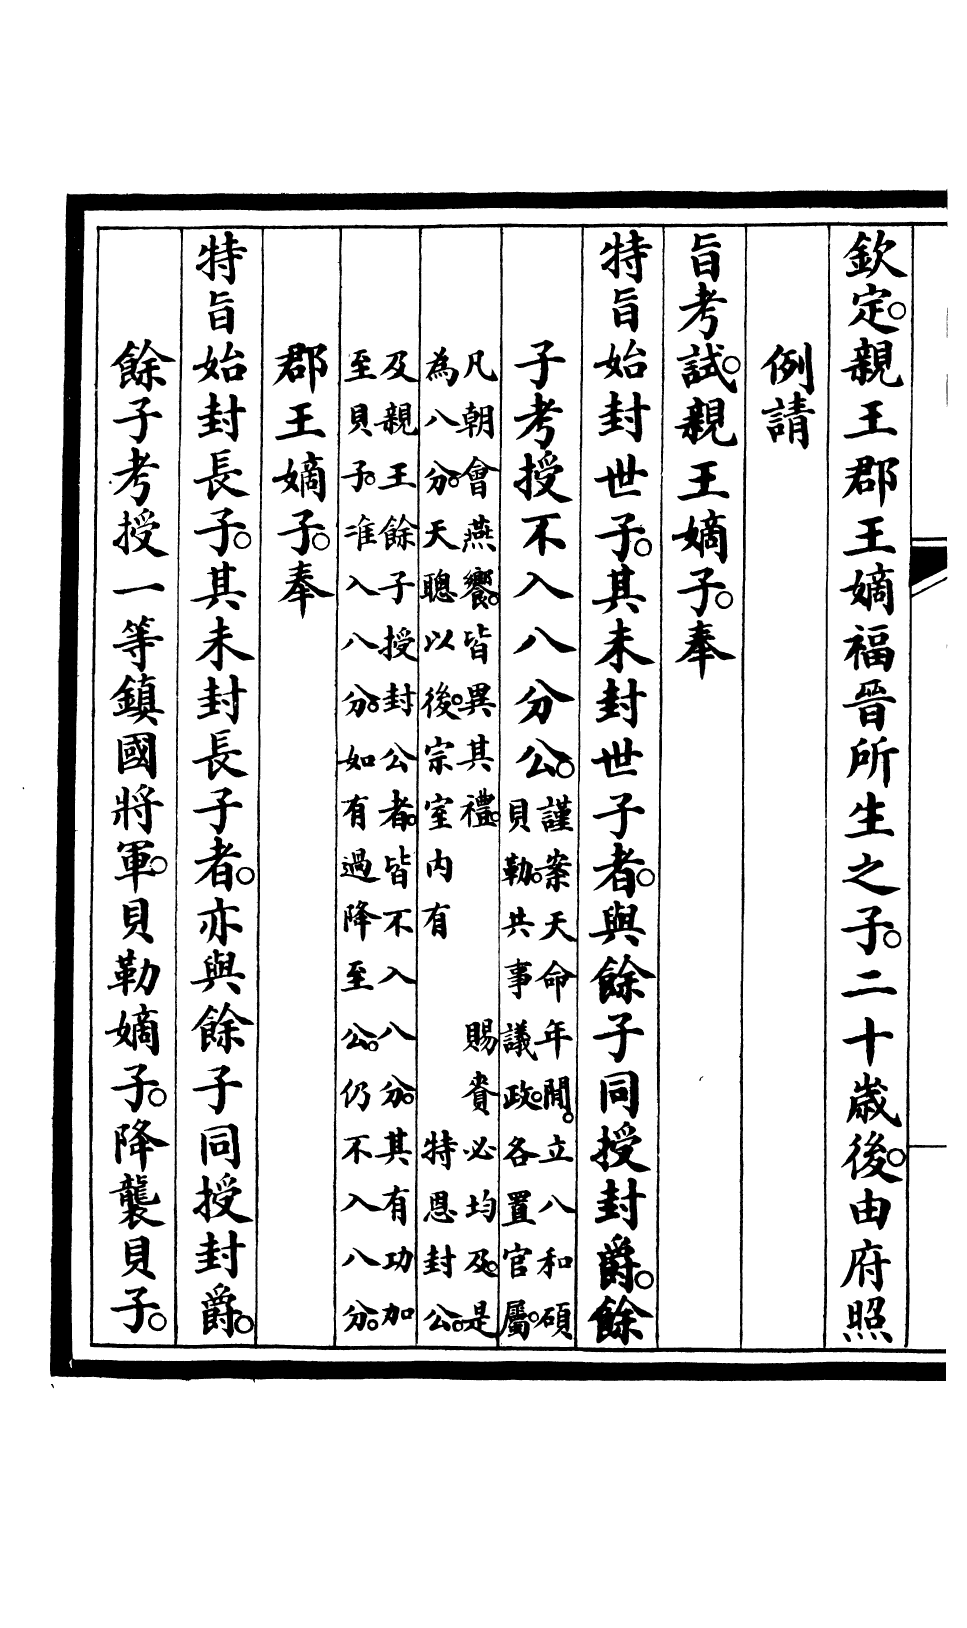 欽定。親王郡王嫡福晉所生之子。二十歲後。由府照
例請
旨考試。親王嫡子。奉
特旨始封世子。其未封世子者。與餘子同授封爵。餘
子考授不入八分公。謹案天命年間。立八和碩
貝勒。共事議政。各置官屬。
凡朝會燕饗。皆異其禮。賜賚必均及。是
為八分。天聰以後。宗室內有特恩封公。
及親王餘子授封公者。皆不入八分。其有功加
至貝子。准入八分。如有過降至公。仍不入八分。
郡王嫡子。奉
特旨始封長子。其未封長子者。亦與餘子同授封爵。
餘子考授一等鎮國將軍。貝勒嫡子。降襲貝子。